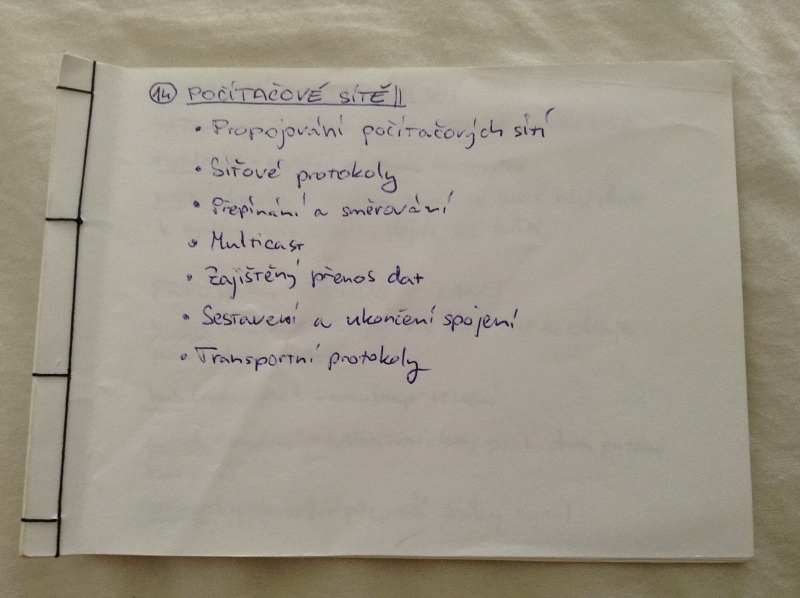 14 POČÍTAČOVÉ SÍTĚ II
• Propojování počítačových sítí
• Síťové protokoly
• Přepínání a směrování
• Multicast
• Zajištěný přenos dat
• Sestavení a ukončení spojení
• Transportní protokoly